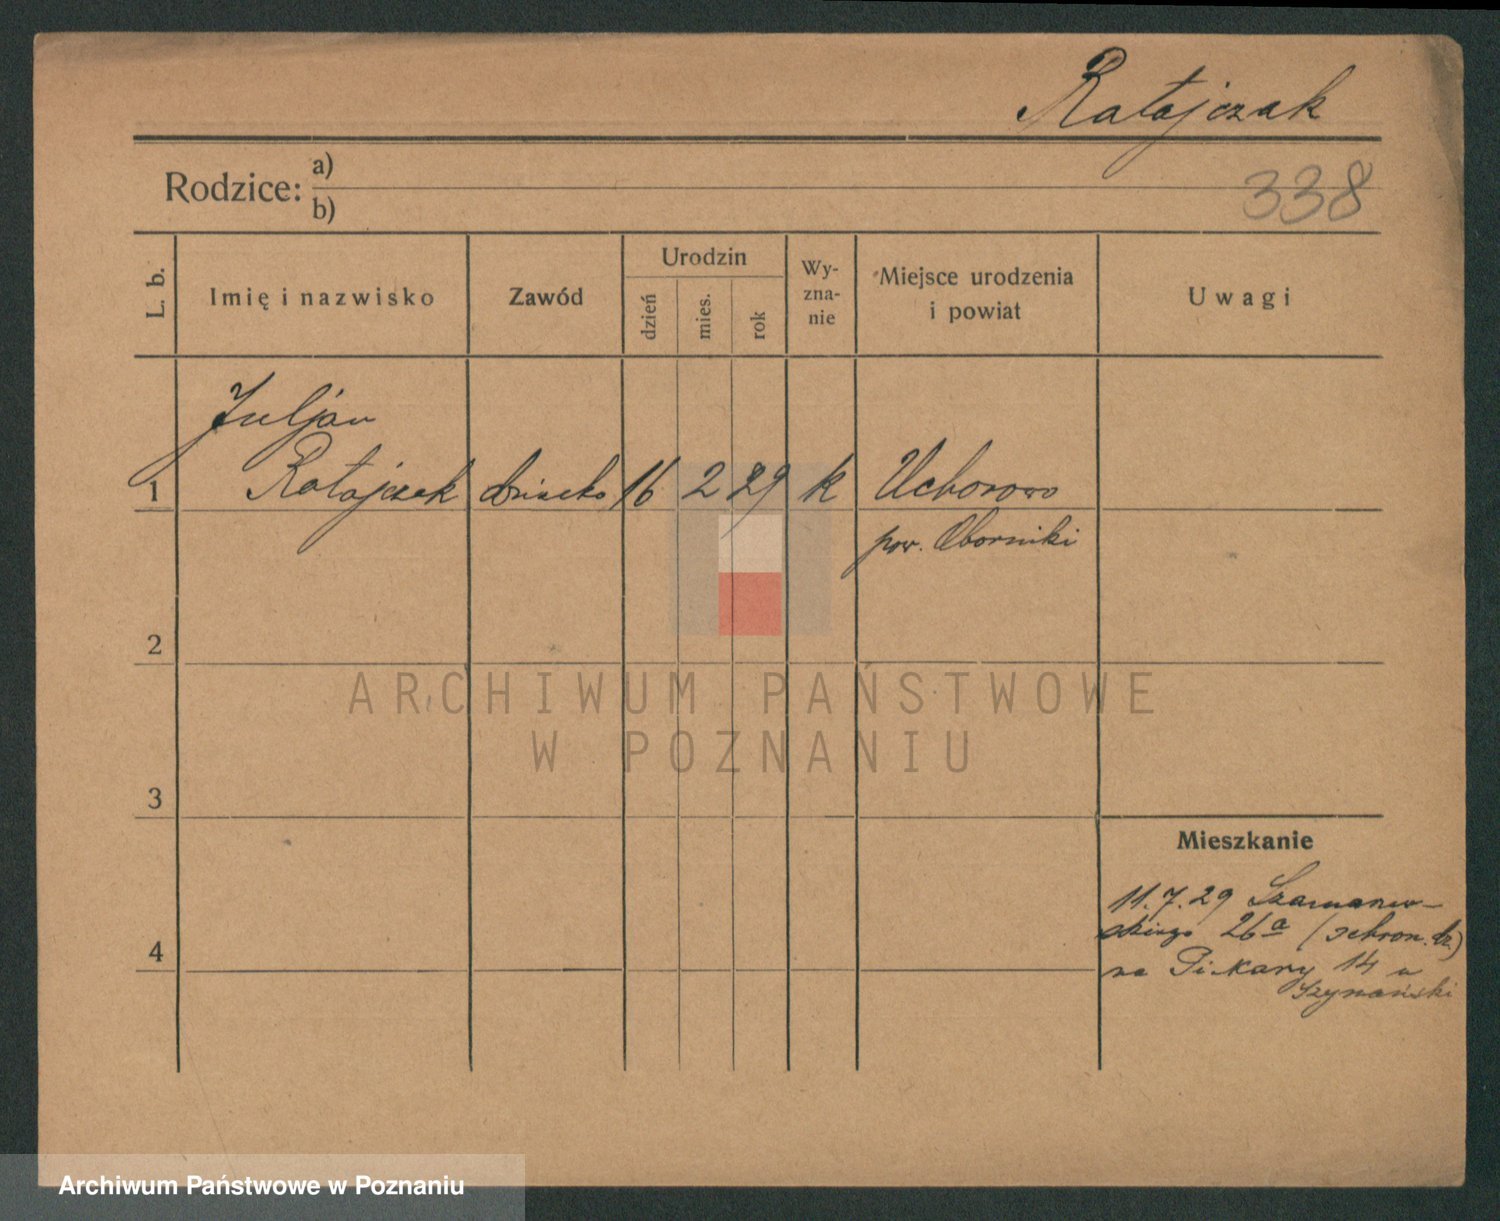 Ratajczak
Rodzice: a)
b)
338
L. b.
Imię i nazwisko
Zawód
Urodzin
dzień
mies.
rok
Wy-
zna-
nie
Miejsce urodzenia
i powiat
Uwagi
Juljan
1 Ratajczak dziecko 16 2 29 k Uchorowo
pow. Oborniki
2
3
4
Mieszkanie
11.7.29 Szamarzew-
skiego 26a (schron. dz.)
na Piekary 14 u
Szymański
ARCHIWUM PAŃSTWOWE
W POZNANIU
Archiwum Państwowe w Poznaniu